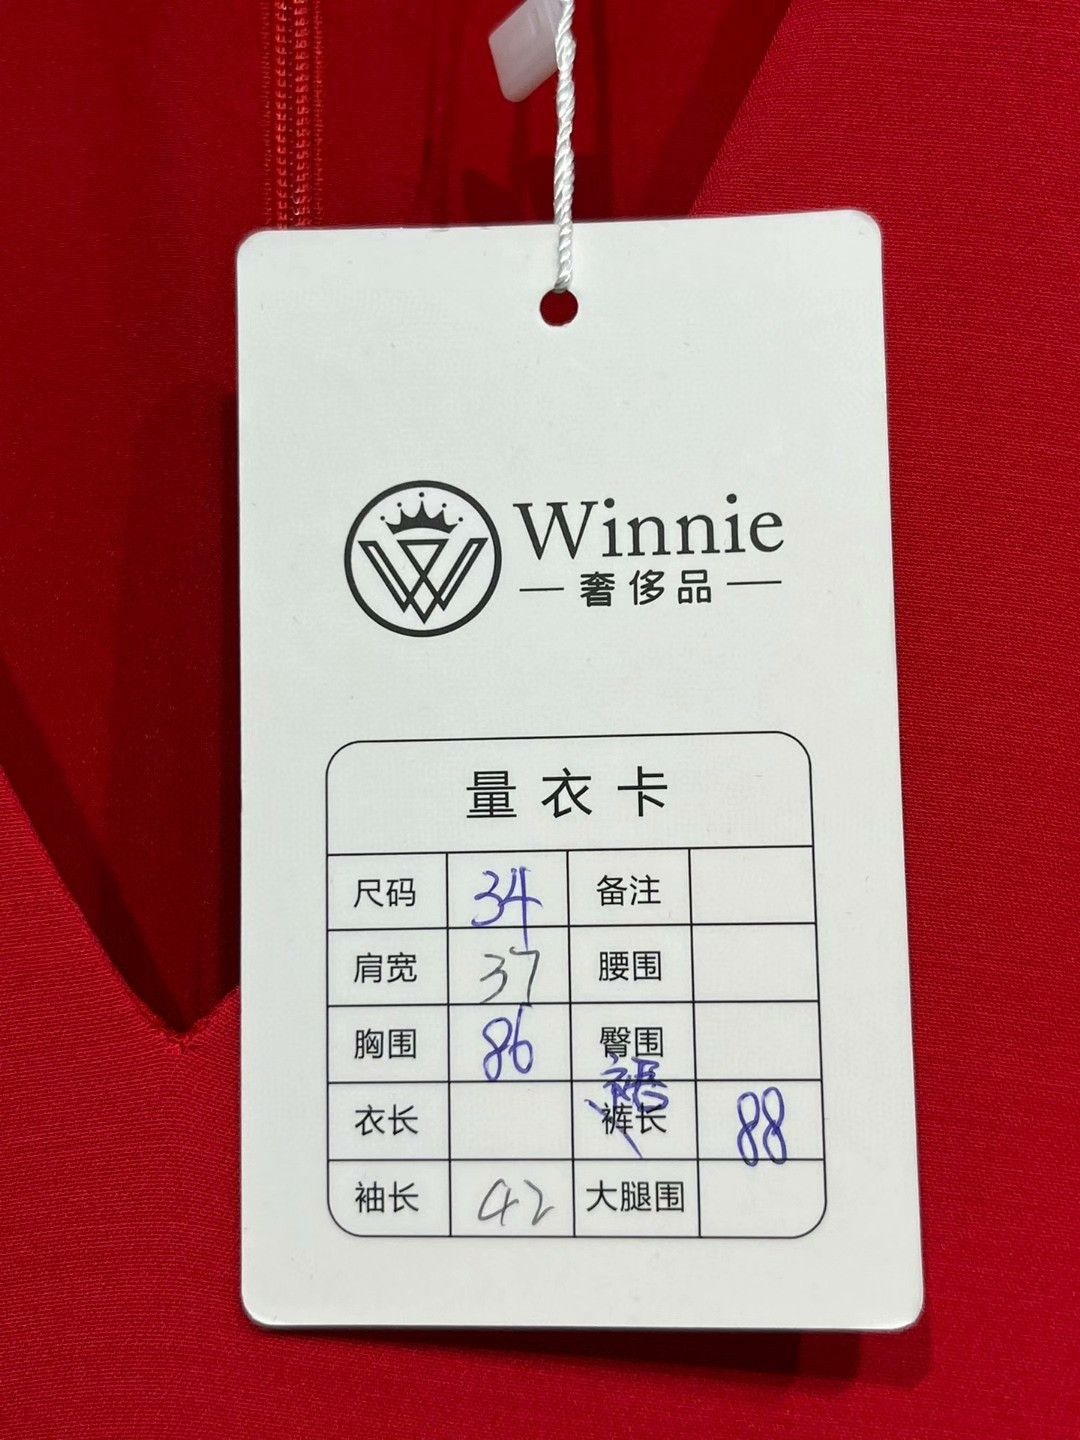 Winnie
奢侈品
量衣卡
尺码 34 备注
肩宽 37 腰围
胸围 86 臀围
衣长 裤长 88
袖长 42 大腿围